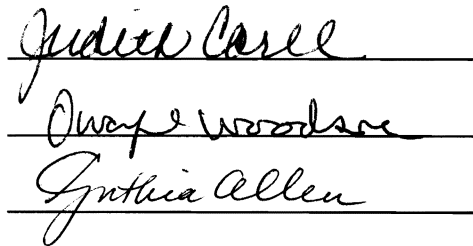 Judith Casll
Dwayne Woodson
Cynthia Allen